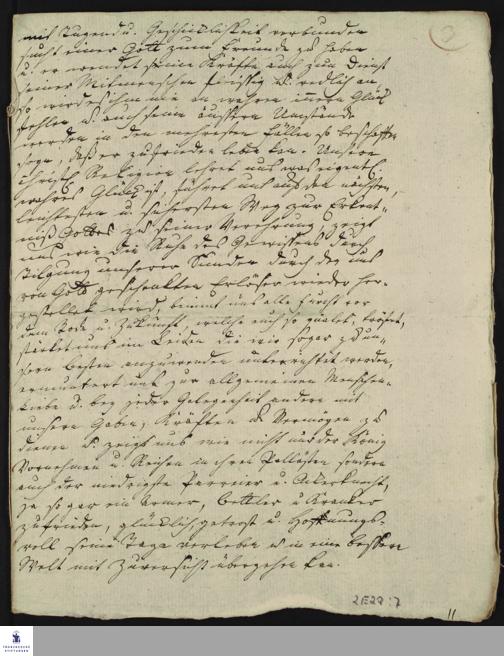 mit Tugend u. Geschicklichkeit verbunden
sucht einen Gott zum Freunde zu haben
u. er wendet seine Kräfte auch zum Dienst
seiner Mitmenschen fleissig u. redlich an
so wird es ihm nie an wahren innern Glük
fehlen u. auch seine äussern Umstände
werden in den mehresten Fällen so beschaffen
seyn, daß er zufrieden leben kan. Unsere
christl. Religion lehret uns was eigentl.
wahres Glük ist, führet uns auf den nächsten,
leichtesten u. sichersten Weg zur Erkent-
niß Gottes zu seiner Verehrung, zeigt
uns wie die Ruhe des Gewissens durch
Tilgung unserer Sünden durch den uns
von Gott geschenkten Erlöser wieder her-
gestellet wird, nimmt uns alle Furcht vor
dem Tode u. Zukunft, welche auch so quälet, tröstet,
stärket uns im Leiden die wir sogar zu un-
sern besten anzuwenden unterrichtet werden,
ermuntert uns zur allgemeinen Menschen-
liebe u. bey jeder Gelegenheit andern mit
unsern Gaben, Kräften u. Vermögen zu
dienen u. zeigt uns wie nicht nur der König
Vornehmen u. Reichen in ihren Pallästen sondern
auch der niedrigste u. Akerknecht,
ja sogar ein Armer, Bettler u. Kranker
zufrieden, glücklich, getrost u. Hoffnungs-
voll seine Tage verleben u. in eine bessere
Welt mit Zuversicht übergehen kan.
2E29:7
11
FRANCKESCHE
STIFTUNGEN